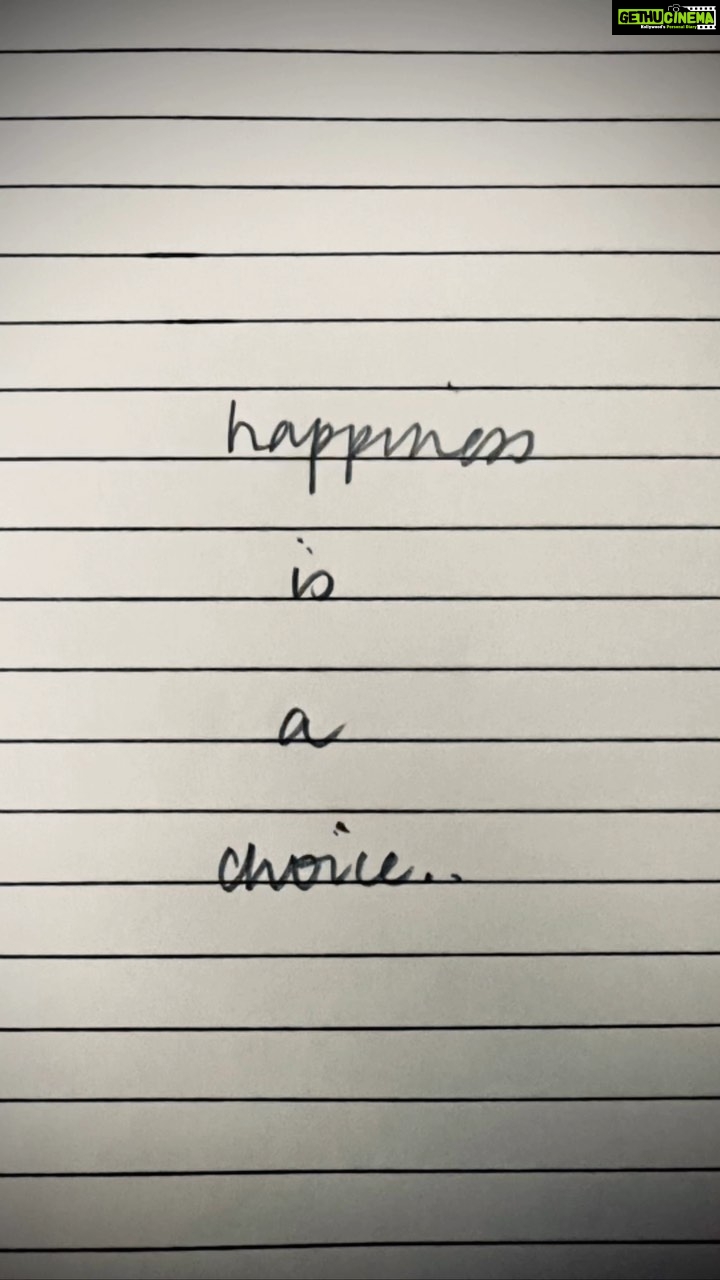 GETHUCINEMA
Kollywood's Personal Diary
happiness
is
a
choice..